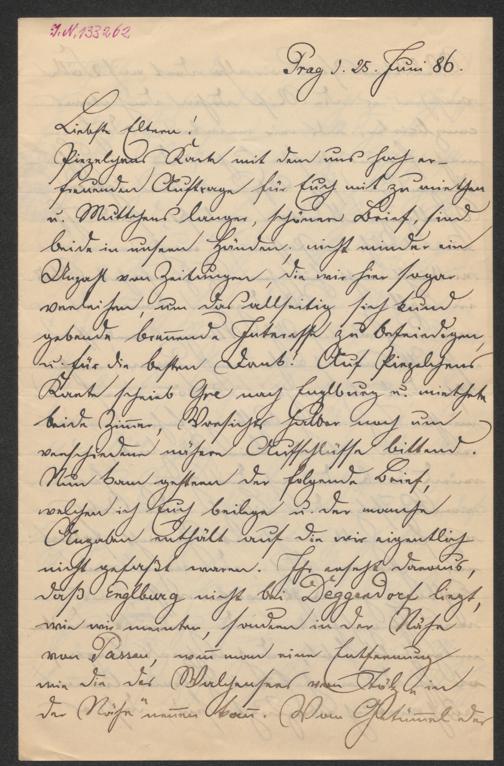 J.N. 133262
Prag d. 25. Juni 86.
Liebste Eltern!
Karte mit dem uns hoch er-
freuenden Auftrage für Euch mit zu miethen
u. Muttchens langer, schöner Brief, sind
beide in unsern Händen, nicht minder ein
Unzahl von Zeitungen, die wir hier sogar
verleihen, um das allseitig sich kund
gebende brennende Interesse zu befriedigen,
u. für die besten Dank! Auf
Karte schrieb nach Englburg u. miethete
beide Zimmer, Vorsichts halber noch um
verschiedene nähere Aufschlüsse bittend.
Nun kam gestern der folgende Brief,
welchen ich Euch beilege u. der manche
Angaben enthält auf die wir eigentlich
nicht gefaßt waren. Ihr erseht daraus,
daß Englburg nicht bei Deggendorf liegt,
wie wir meinten, sondern in der Nähe
von Passau, wenn man eine Entfernung
wie die des Walchensees von Tölz „in
der Nähe" nennen kann. Vom Getümmel der